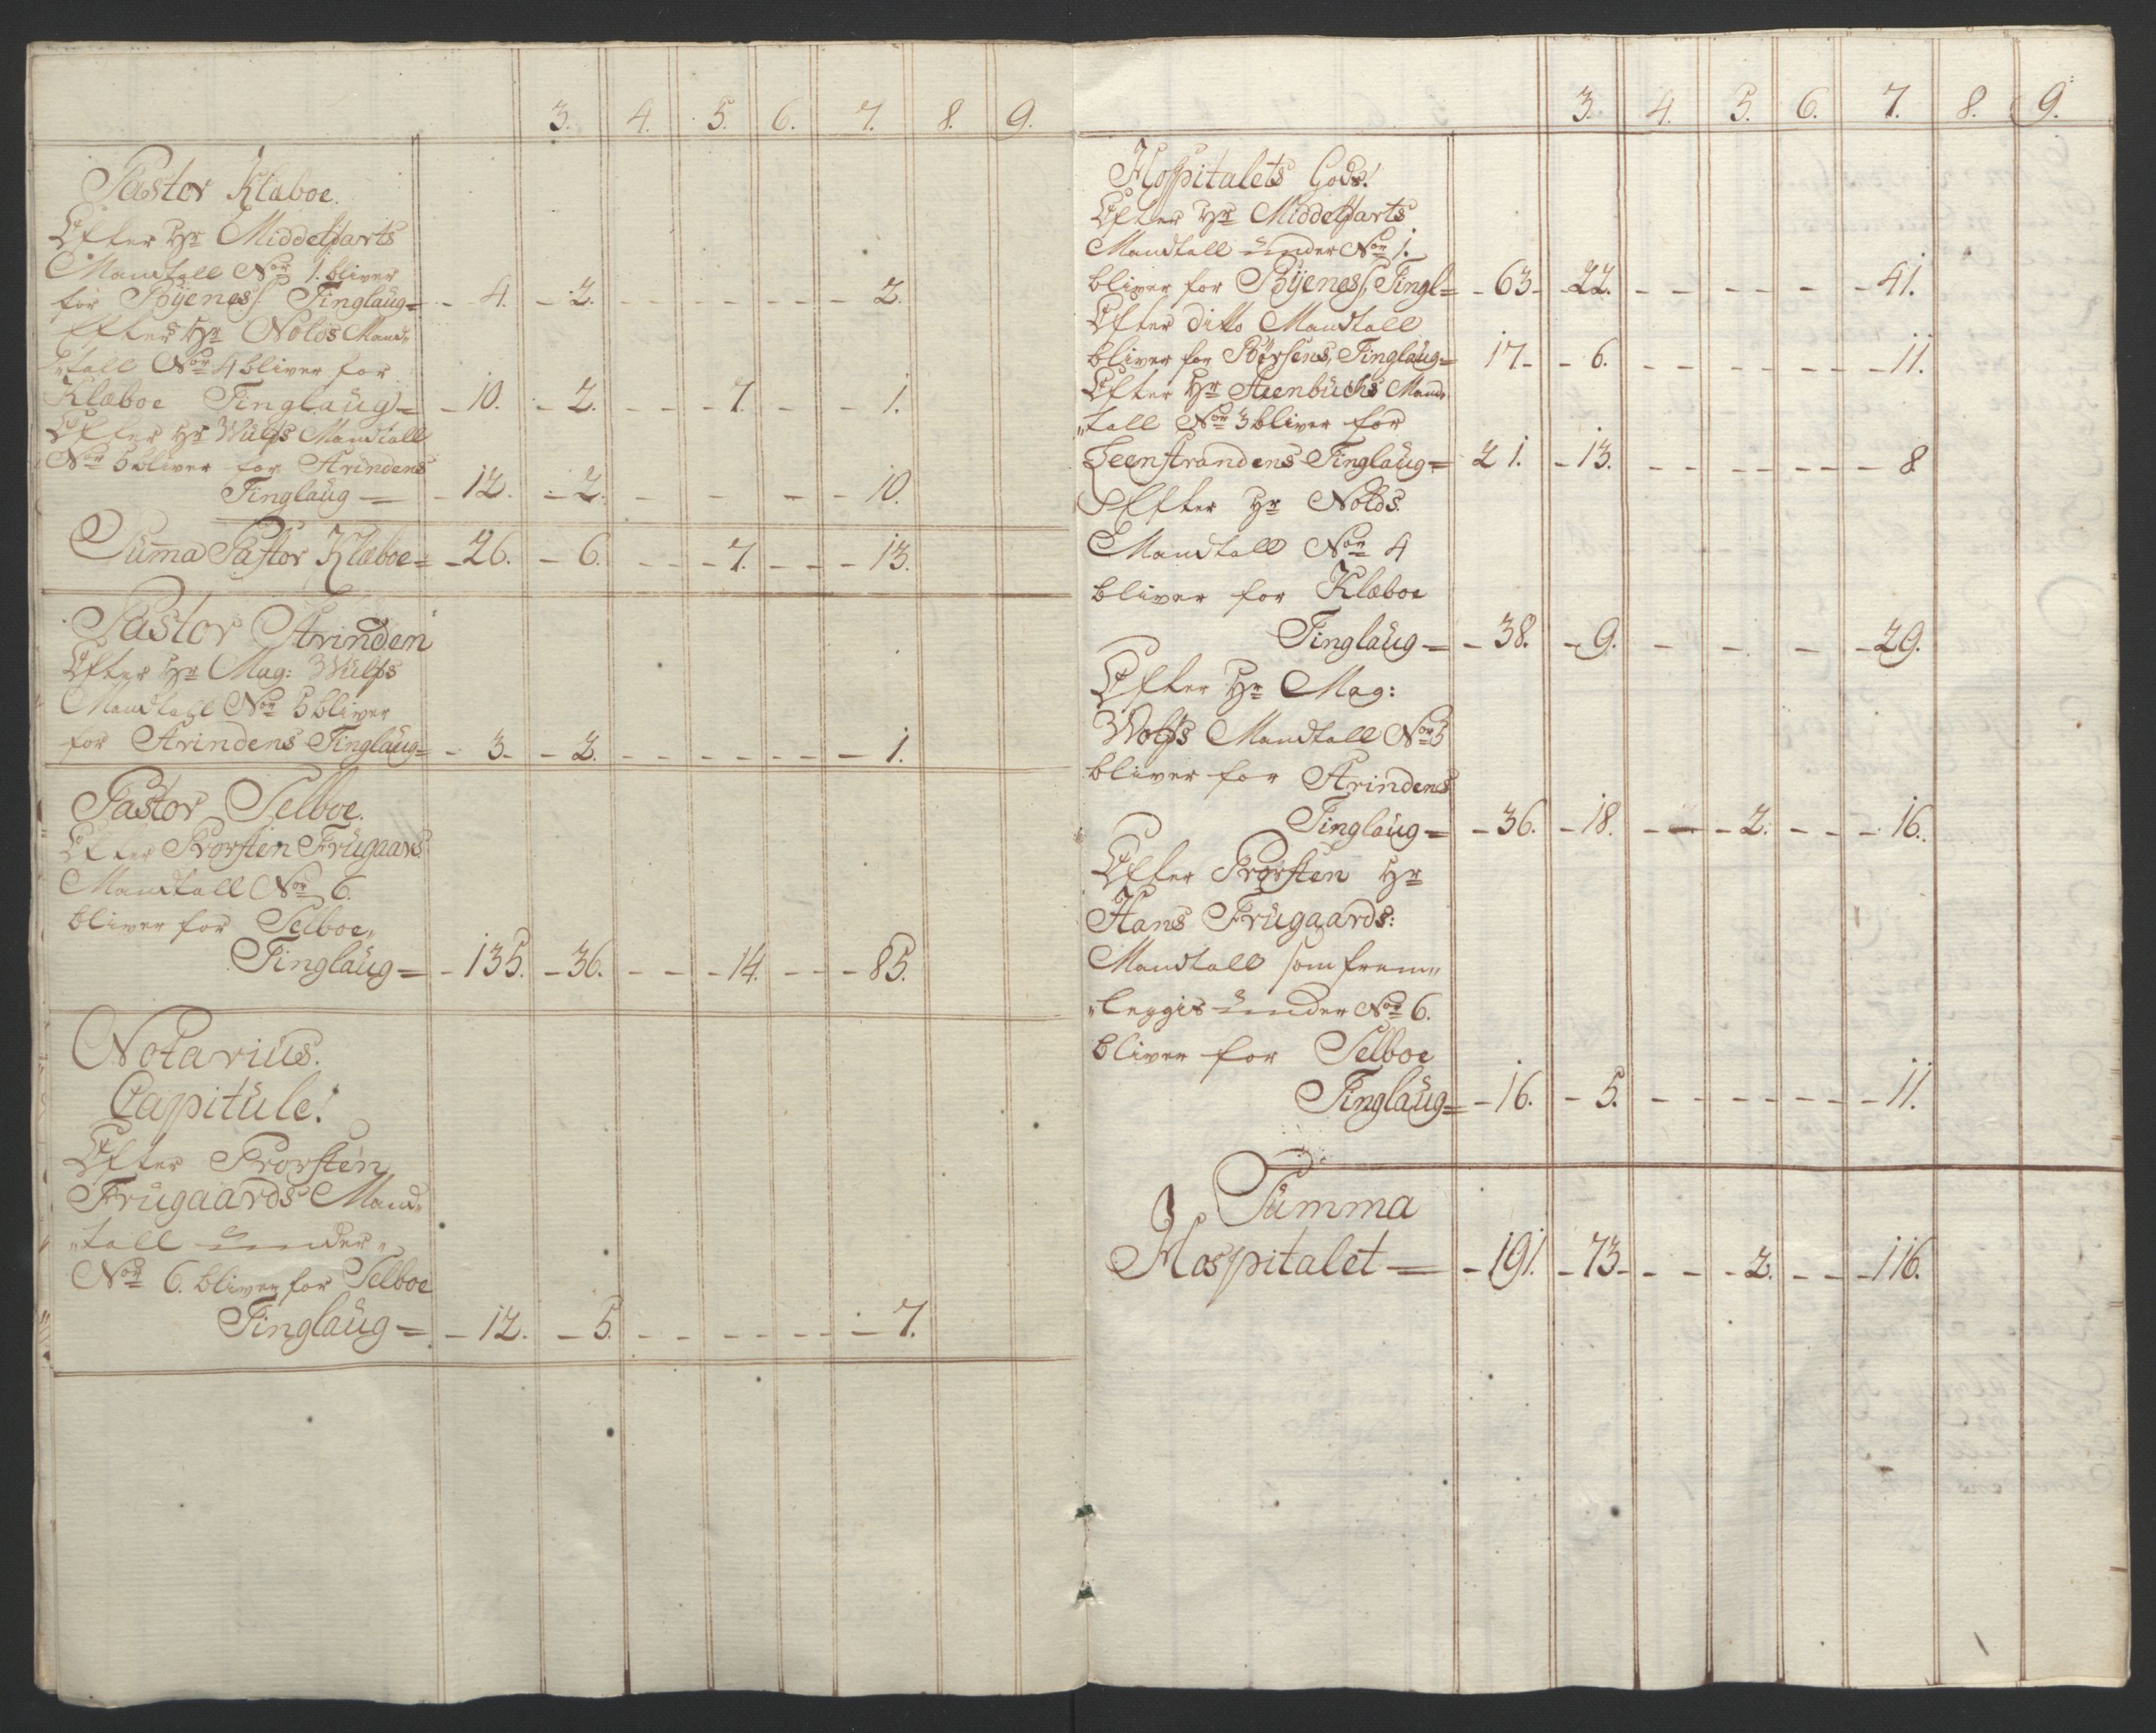 3. 4. 5. 6. 7. 8. 9.
Pastor Klæboe.
Efter Hr Middelfarts
Mandtall Nor 1. bliver
for Byenes, Tinglaug= - 4. - 2. - - - - - - 2.
Efter Hr Nolds Mand=
"tall Nor 4 bliver for
Klæboe Tinglaug= - 10. - 2. - - - 7. - - 1.
Efter Hr Wulfs Mandtall
Nor 5 bliver for Strindens
Tinglaug - - 12. - 2. - - - - 10.
Summa Pastor Klæboe= - 26. - 6. - - - 7. - - - 13.
Pastor Strinden
Efter Hr Mag: Wulfs
Mandtall Nor 5 bliver
for Strindens Tinglaug= - 3 - - 2. - - - - - - - 1.
Pastor Selboe.
Efter Prorsten Frugaards
Mandtall Nor 6.
bliver for Selboe,,
Tinglaug= - 135. - 36. - - - 14. - - - 85.
Notarius.
Capitule.
Efter Prorsten
Frugaards Mand=
"tall under"
Nor 6. bliver for Selboe
Tinglaug= - 12. - 5. - - - - - - - 7.
3. 4. 5. 6. 7. 8. 9.
Hospitalets Gods.
Efter Hr Middelfarts
Mandtall under Nor 1.
bliver for Byenes, Tingl= - 63 - - 22. - - - - - - - 41.
Efter ditto Mandtall
bliver for Børsens, Tinglaug= 17 - - 6. - - - - - - - 11.
Efter Hr Steenbuchs Mand=
"tall Nor 3 bliver for
Leenstrandens Tinglaug= 21. - 13. - - - - - - - 8
Efter Hr Nolds.
Mandtall Nor 4
bliver for Klæboe
Tinglaug= - 38. - 9. - - - - 29.
Efter Hr Mag:
Wolfs Mandtall Nor 5
bliver for Strindens
Tinglaug= - 36. - 18. - - - 2. - - - 16.
Efter Prorsten Hr
Hans Frugaards:
Mandtall som frem"
"leggis under Nor 6.
bliver for Selboe
Tinglaug= - 16. - 5. - - - - - - - 11.
Summa
Hospitalet= - 191. - 73 - - - - 2. - - - 116.